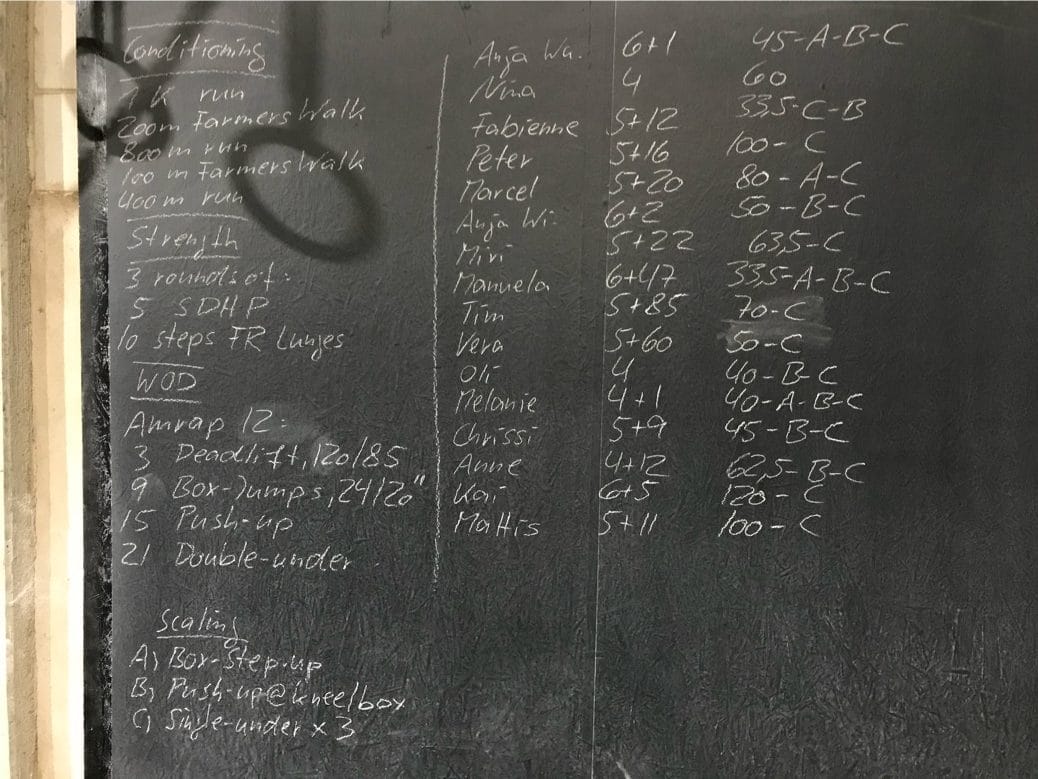 Conditioning
1 K run
200m Farmers Walk
800 m run
100 m Farmers Walk
400m run
Strength
3 rounds of:
5 SDHP
10 steps FR Lunges
WOD
Amrap 12:
3 Deadlift, 120/85
9 Box-Jumps, 24/20"
15 Push-up
21 Double-under
Scaling
A) Box-Step-up
B) Push-up@knee/box
C) Single-under x 3
Anja Wa. 6+1 45-A-B-C
Nina 4 60
Fabienne 5+12 33,5-C-B
Peter 5+16 100-C
Marcel 5+20 80-A-C
Anja Wi. 6+2 50-B-C
Miri 5+22 63,5-C
Manuela 6+47 33,5-A-B-C
Tim 5+85 70-C
Vera 5+60 50-C
Oli 4 40-B-C
Melanie 4+1 40-A-B-C
Chrissi 5+9 45-B-C
Anne 4+12 62,5-B-C
Kai 6+5 120-C
Mattis 5+11 100-C